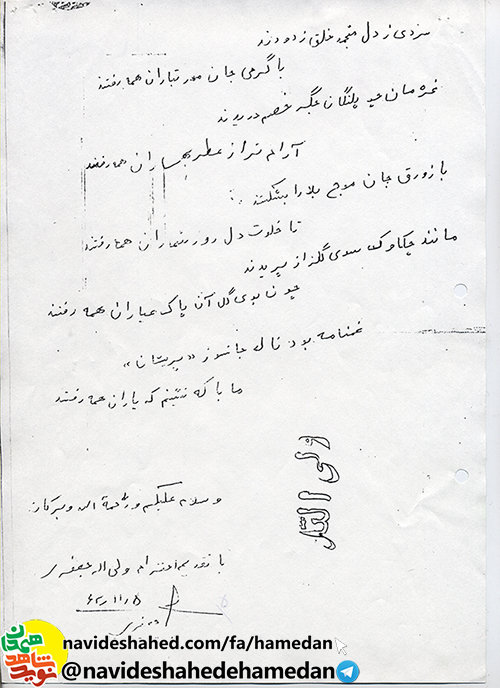 سردی ز دل منجمد خلق زدودند
با گرمی جان مهر تباران همه رفتند
غژمان چو پلنگان جگر خصم دریدند
آرام تر از عطر بهساران همه رفتند
با زورق جان موج بلا را بشکستند
تا خلوت دل روزنماران همه رفتند
مانند چکاوک سوی گلزار پریدند
چون بوی گل آن پاک عیاران همه رفتند
غمنامه بود نال جانسوز «پریشان»
ما با که نشینیم که یاران همه رفتند
ولی الله
و سلام علیکم و رحمة الله و برکاته
با تقدیم احترام ولی اله جعفری
۶۲/۱۱/۵
navideshahed.com/fa/hamedan
@navideshahedehamedan
نوید شاهد همدان